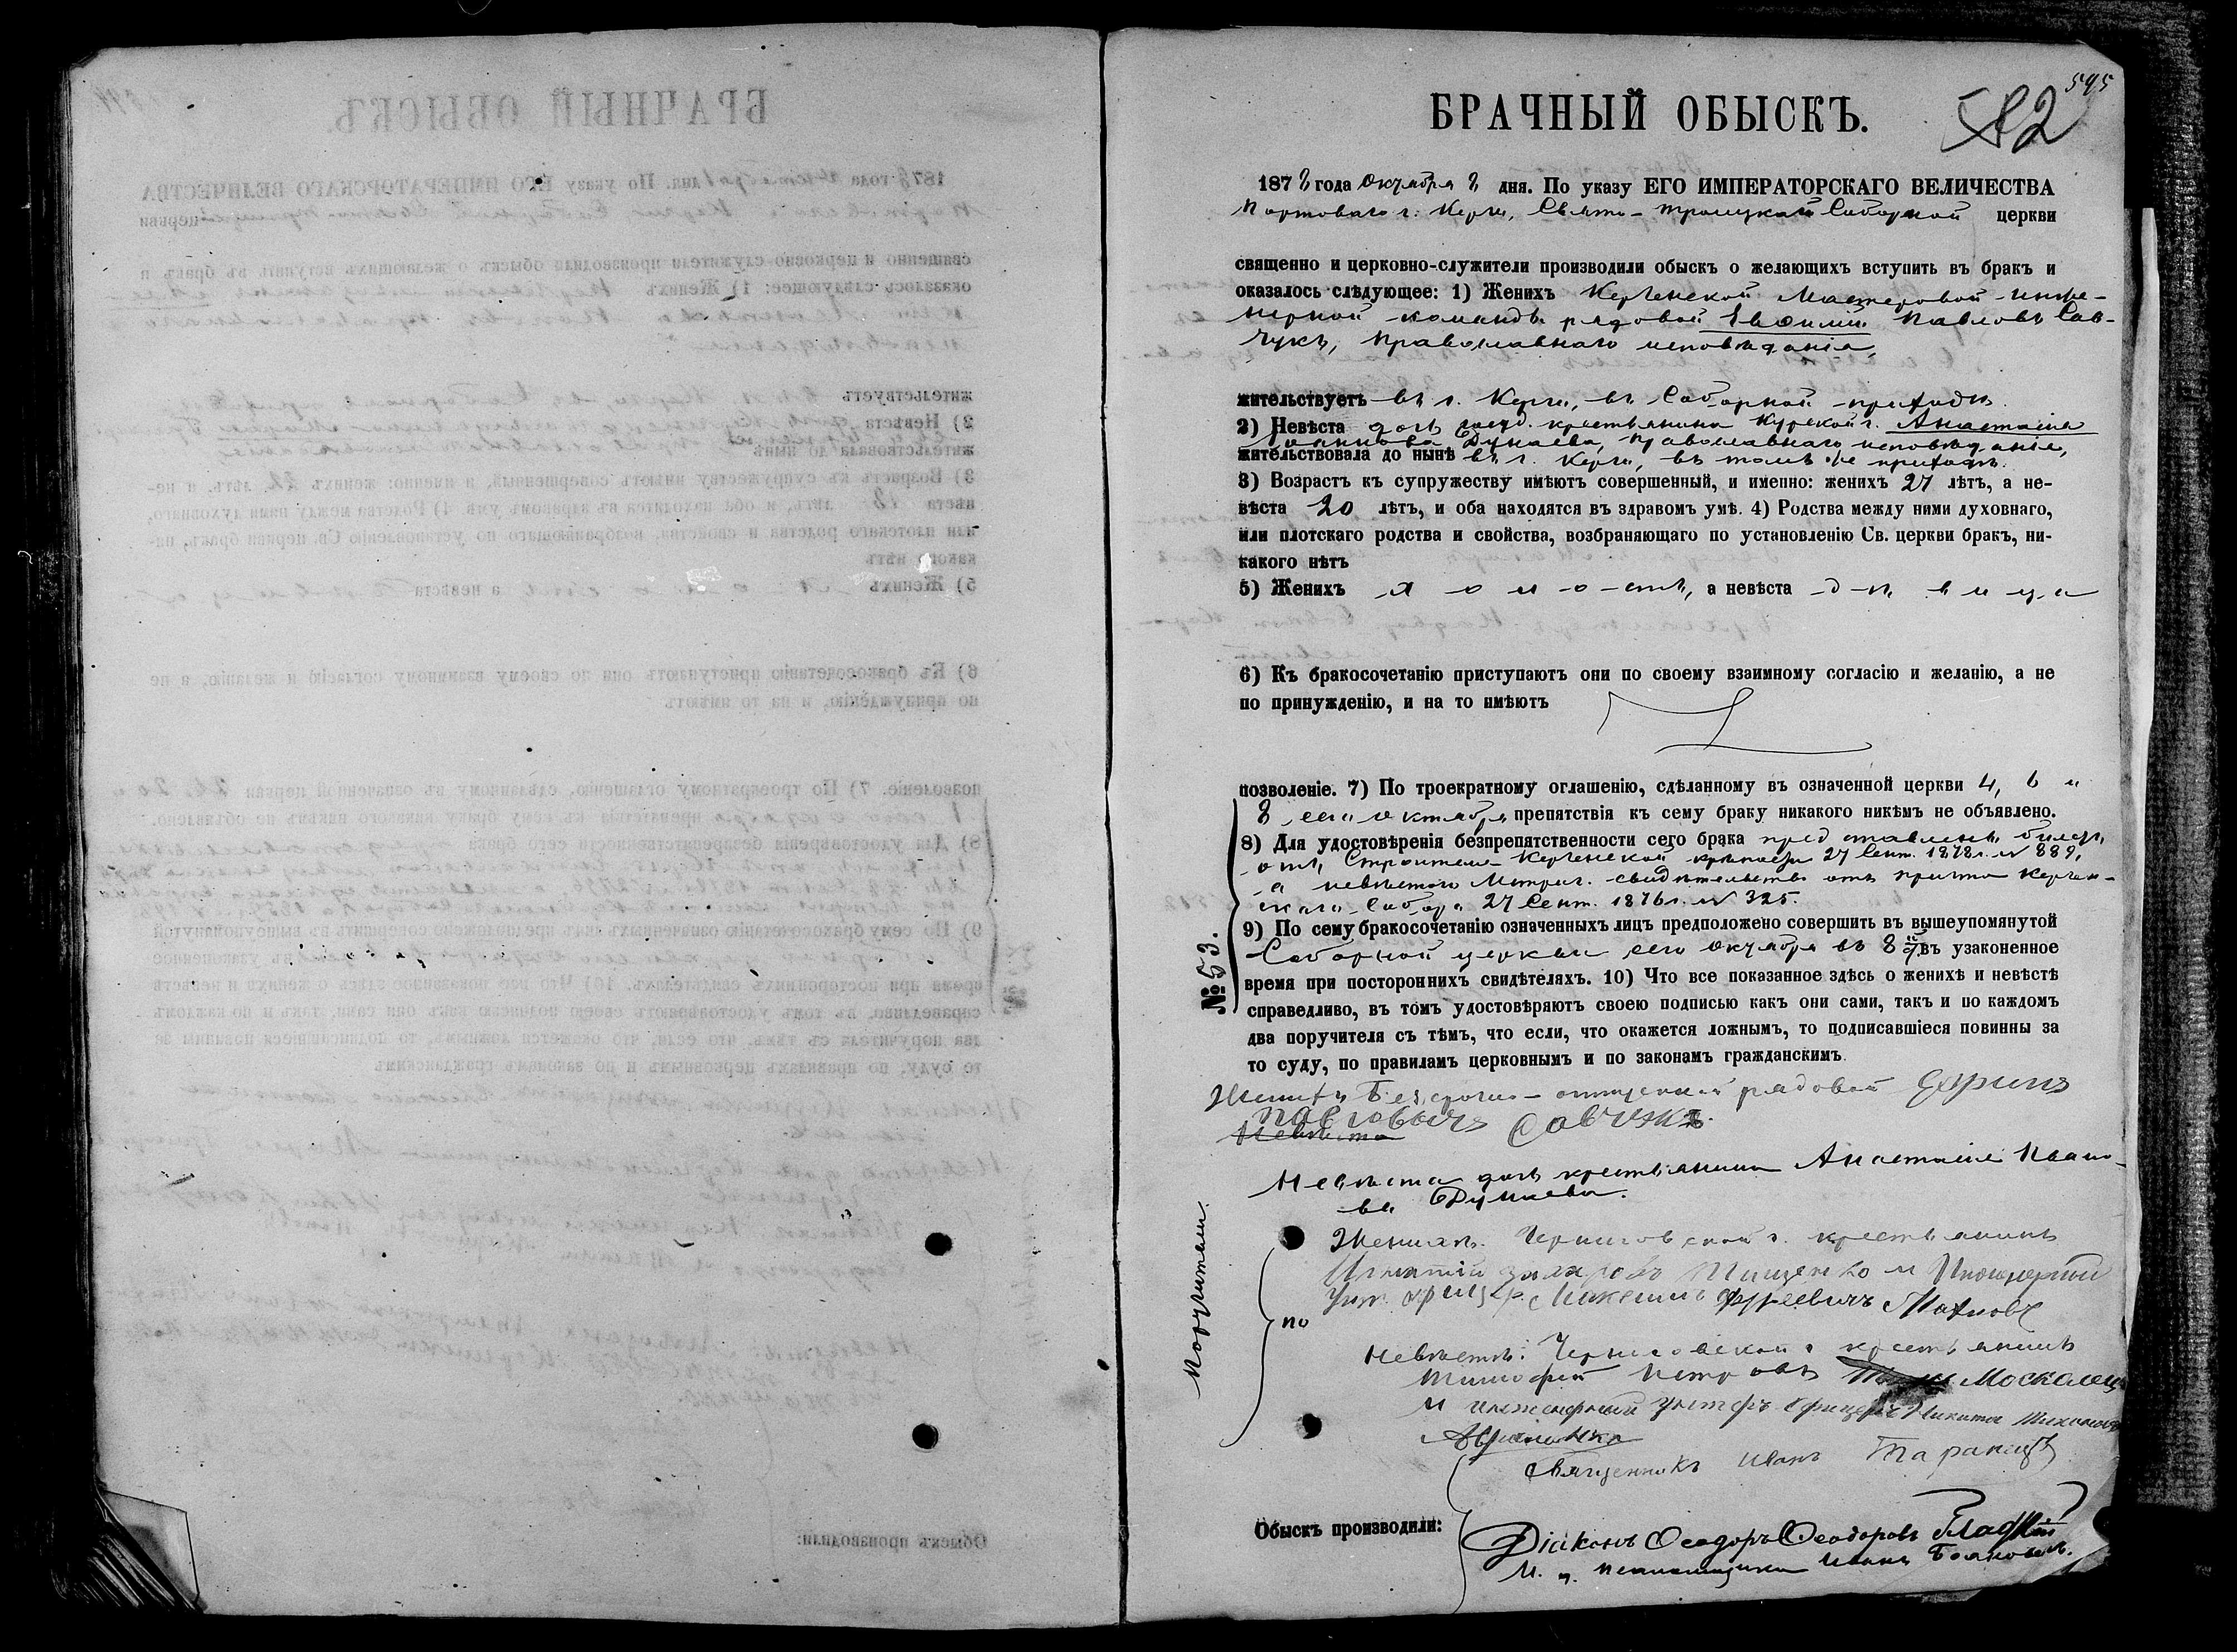 595
БРАЧНЫЙ ОБЫСКЪ.
582
1878 года Октября 8 дня. По указу ЕГО ИМПЕРАТОРСКАГО ВЕЛИЧЕСТВА
Портоваго г. Керчи, Свято-Троицкой Соборной церкви
священно и церковно-служители производили обыскъ о желающихъ вступить въ бракъ и
оказалось слѣдующее: 1) Женихъ Керченской Мастеровой инже-
нерной команды рядовой Евѳимій Павловъ Сав-
чукъ, православнаго исповѣданія,
жительствуетъ въ г. Керчи, въ Соборномъ приходѣ
2) Невѣста дочь крестьянина Курской г. Анастасія
Іоаннова Дунаева, православнаго исповѣданія,
жительствовала до нынѣ въ г. Керчи, въ томъ же приходѣ.
3) Возрастъ къ супружеству имѣютъ совершенный, и именно: женихъ 27 лѣтъ, а не-
вѣста 20 лѣтъ, и оба находятся въ здравомъ умѣ. 4) Родства между ними духовнаго,
или плотскаго родства и свойства, возбраняющаго по установленію Св. церкви бракъ, ни-
какого нѣтъ
5) Женихъ холостъ, а невѣста дѣвица
6) Къ бракосочетанію приступаютъ они по своему взаимному согласію и желанію, а не
по принужденію, и на то имѣютъ
позволеніе. 7) По троекратному оглашенію, сдѣланному въ означенной церкви 4, 6 и
8 сего октября препятствія къ сему браку никакого никѣмъ не объявлено.
8) Для удостовѣренія безпрепятственности сего брака представленъ билетъ
отъ Строителя Керченской крѣпости 27 Сент. 1878 г. № 889,
а невѣстою Метрич. свидѣтельство отъ причта Керчен-
скаго Собора 27 Сент. 1876 г. № 325.
9) По сему бракосочетанію означенныхъ лицъ предположено совершить въ вышеупомянутой
Соборной церкви сего Октября въ 8 й въ узаконенное
время при постороннихъ свидѣтеляхъ. 10) Что все показанное здѣсь о женихѣ и невѣстѣ
справедливо, въ томъ удостовѣряютъ своею подписью какъ они сами, такъ и по каждомъ
два поручителя съ тѣмъ, что если, что окажется ложнымъ, то подписавшіеся повинны за
то суду, по правиламъ церковнымъ и по законамъ гражданскимъ.
№ 53.
Женихъ Безсрочно-отпускной рядовой Ефимъ
Павловичъ Савчукъ.
Невѣста
Невѣста дочь крестьянина Анастасія Ивано-
ва Дунаева.
Поручители
по
Женихѣ: Черниговской г. крестьянинъ
Игнатій Захаровъ Тищенко и Инженерный
Унт. офицер. Максимъ Махновъ
Невѣстѣ: Черниговской г. крестьянинъ
Тимофей Петровъ Москалецъ
и инженерный унтеръ офицеръ Никита
Священникъ Иванъ Таранецъ
Обыскъ производили:
Діаконъ Ѳеодоръ Ѳеодоровъ Гладкій
И. д. псаломщика Иванъ